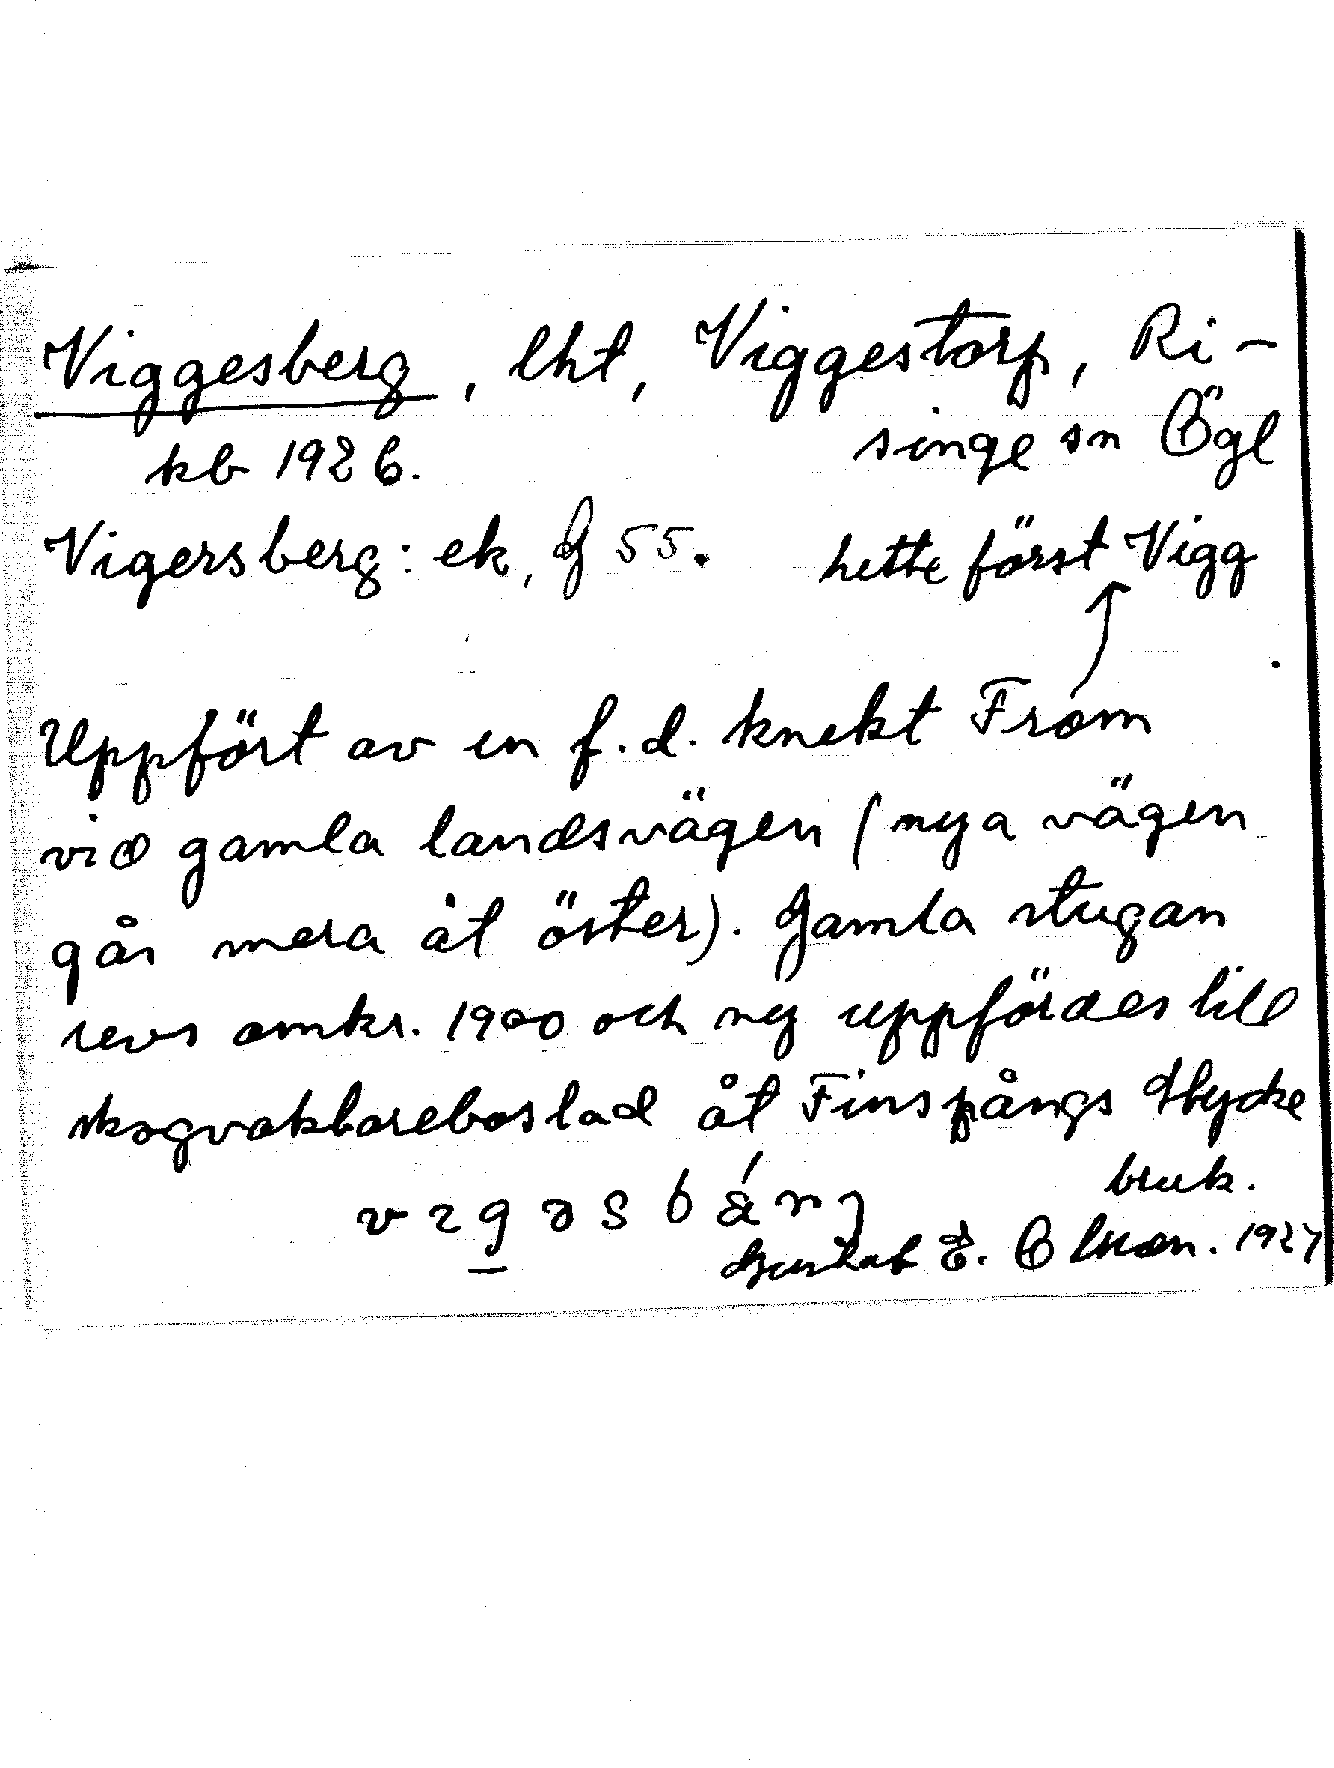 Viggesberg, lht, Viggestorp, Ri-
kb 1926. singe sn Ögl
Vigersberg: ek, G 55. hette först Vigg
Uppfört av en f.d. knekt From
vid gamla landsvägen (nya vägen
går mera åt öster). Gamla stugan
revs omkr. 1900 och ny uppfördes till
skogvaktarebostad åt Finspångs Stycke
bruk.
Gustaf E. Olsson. 1927